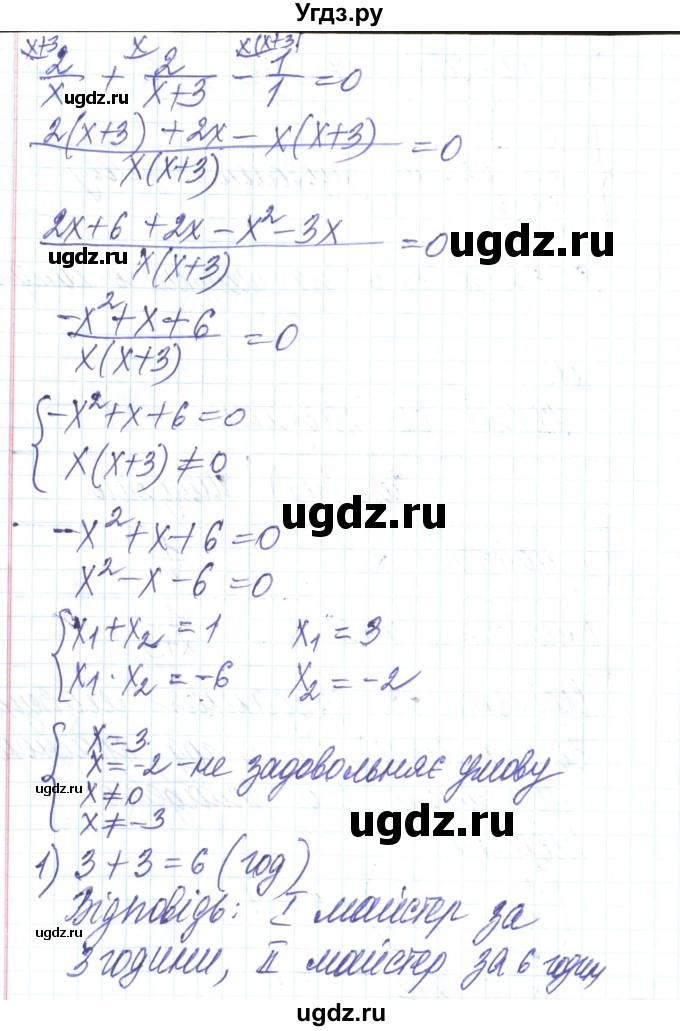 Угдз.ру
x+3 x x(x+3)
2/x + 2/(x+3) - 1/1 = 0
ugdz.ru
(2(x+3) + 2x - x(x+3))/(x(x+3)) = 0
(2x+6+2x-x²-3x)/(x(x+3)) = 0
ugdz.ru
ugdz.ru
(-x²+x+6)/(x(x+3)) = 0
{-x²+x+6=0
x(x+3)≠0
ugdz.ru
-x²+x+6=0
x²-x-6=0
{x₁+x₂=1 x₁=3
x₁·x₂=-6 x₂=-2
{x=3
x=-2 - не задовольняє умову
ugdz.ru
x≠0
x≠-3
ugdz.ru
1) 3+3=6 (год)
Відповідь: I майстер за
ugdz.ru
3 години, II майстер за 6 годин
ugdz.ru